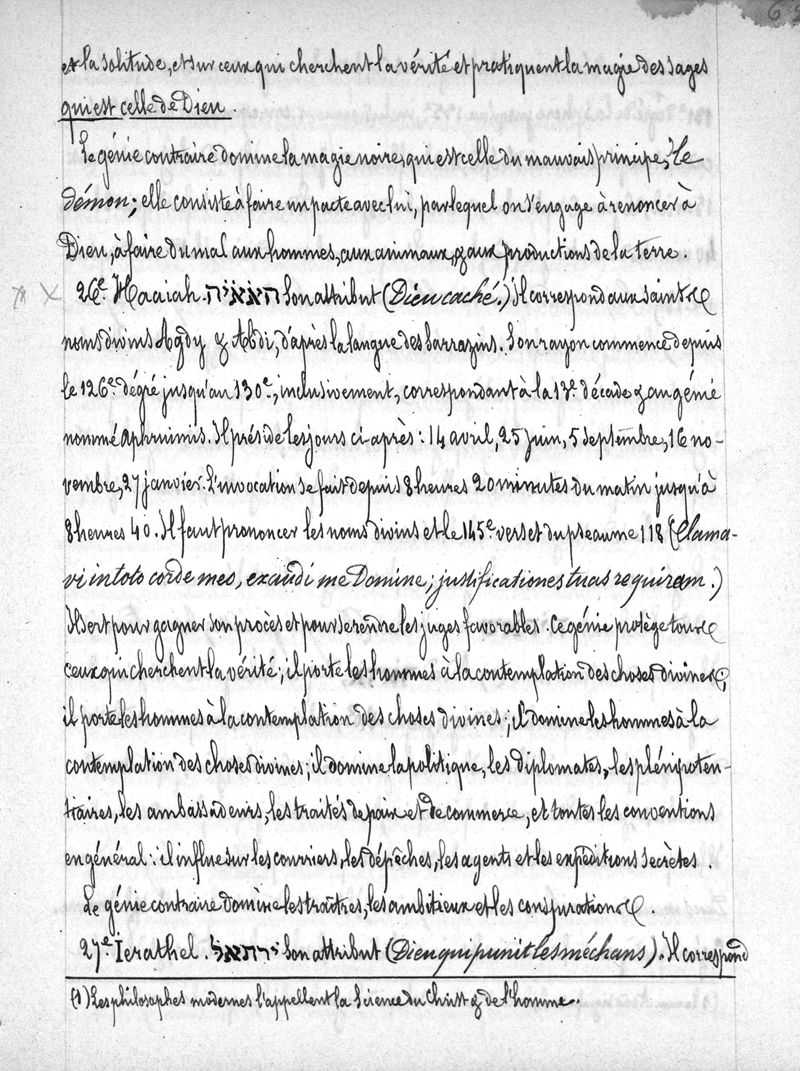 65
et la solitude, et sur ceux qui cherchent la vérité et pratiquent la magie des sages
qui est celle de Dieu.
Le génie contraire domine la magie noire, qui est celle du mauvais principe, le
démon; elle consiste à faire un pacte avec lui, par lequel on s'engage à renoncer à
Dieu, à faire du mal aux hommes, aux animaux, & aux productions de la terre.
26e. Haaiah. האאיה Son attribut (Dieu caché.) Il correspond aux saints
noms divins Agdy & Abdi, d'après la langue des Sarrazins. Son rayon commence depuis
le 126e. dégré jusqu'au 130e., inclusivement, correspondant à la 13e. décade & au génie
nommé Aphruimis. Il préside les jours ci-après: 14 avril, 25 juin, 5 septembre, 16 no-
vembre, 27 janvier. L'invocation se fait depuis 8 heures 20 minutes du matin jusqu'à
8 heures 40. Il faut prononcer les noms divins et le 145e. verset du pseaume 118 (Clama-
vi in toto corde meo, exaudi me Domine; justificationes tuas requiram.)
Il sert pour gagner son procès et pour se rendre les juges favorables. Ce génie protège tous
ceux qui cherchent la vérité; il porte les hommes à la contemplation des choses divines;
il porte les hommes à la contemplation des choses divines; il domine les hommes à la
contemplation des choses divines; il domine la politique, les diplomates, les plénipoten-
tiaires, les ambassadeurs, les traités de paix et de commerce, et toutes les conventions
en général: il influe sur les courriers, les dépêches, les agents et les expéditions secrètes.
Le génie contraire domine les traîtres, les ambitieux et les conspirations.
27e. Ierathel. ירתאל Son attribut (Dieu qui punit les méchans). Il correspond
(1) Les philosophes modernes l'appellent la Science du Christ & de l'homme.